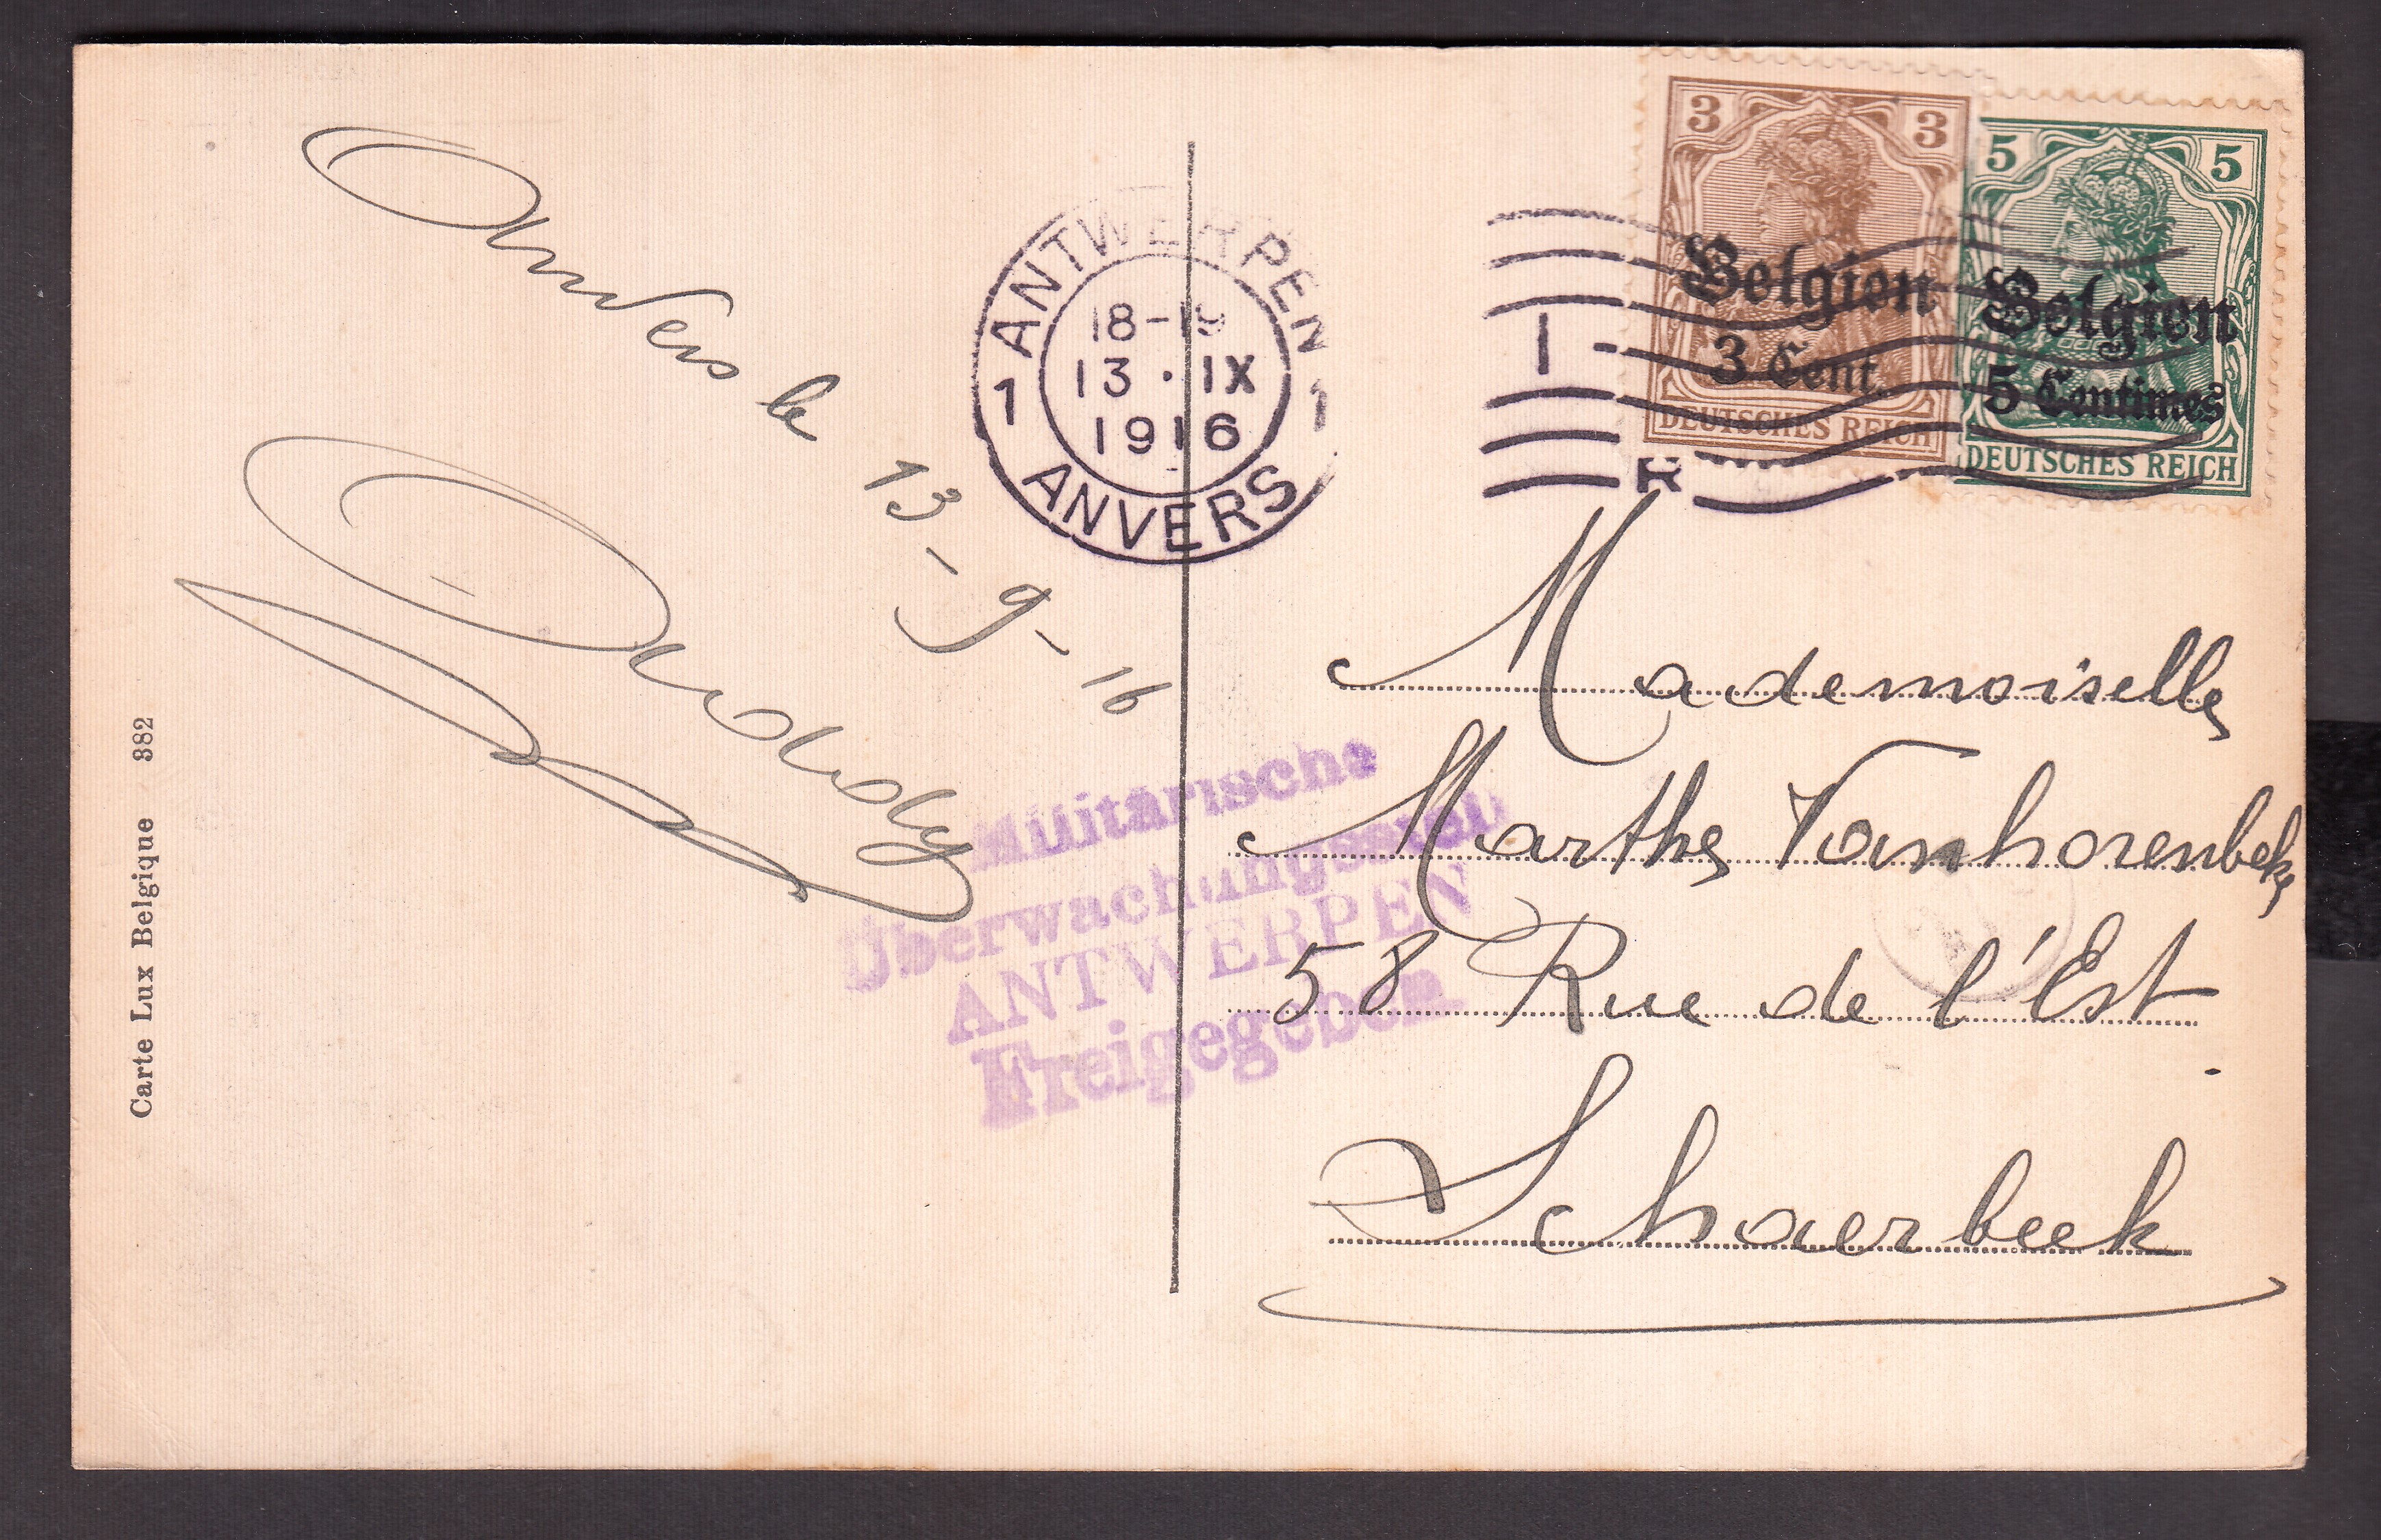 Anvers le 13-9-16
Carte Lux Belgique 382
ANTWERPEN
18-19
13 · IX
1916
1 1
ANVERS
3 3
Belgien
3 Cent.
DEUTSCHES REICH
5 5
Belgien
5 Centimes
DEUTSCHES REICH
Militärische
ANTWERPEN
Freigegeben.
Mademoiselle
Marthe Vanhorenbeke
58 Rue de l'Est
Schaerbeek